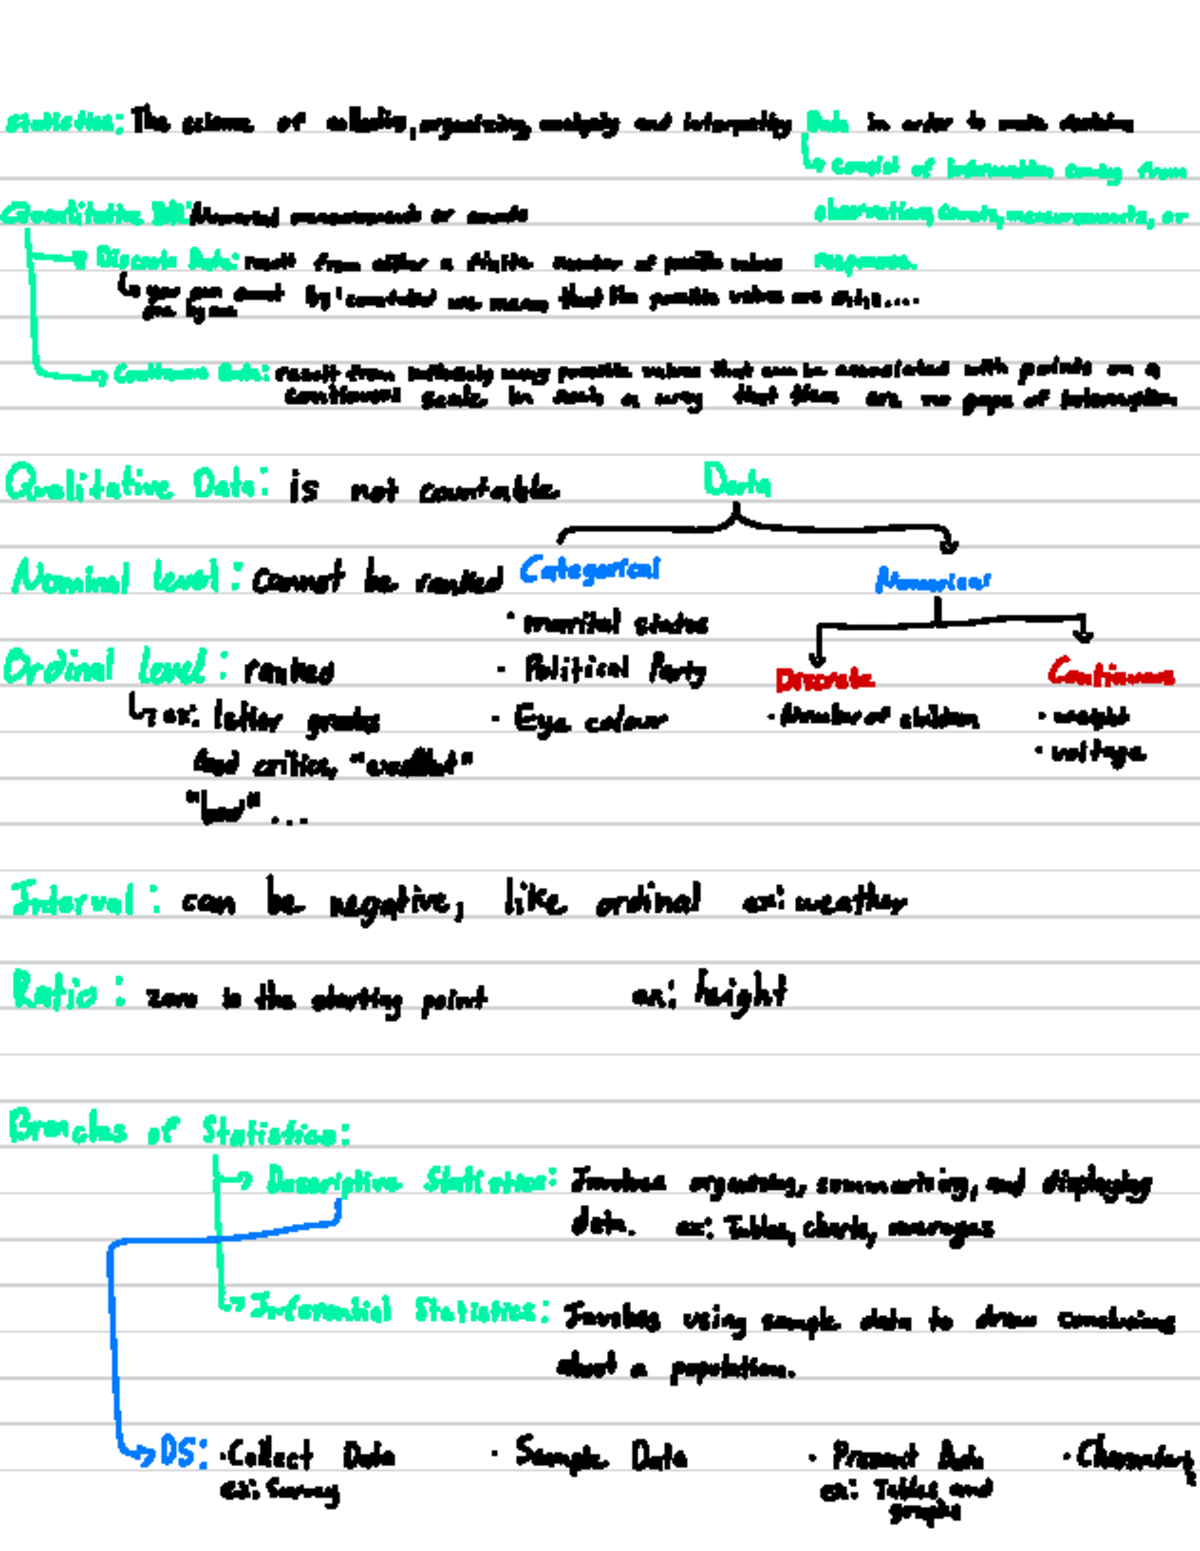 Statistics: The science of collecting, organizing, analyzing and interpreting Data in order to make decisions
consist of information coming from
observations, counts, measurements, or
responses.
Quantitative Data: Numerical measurements or counts
Discrete Data: result from either a finite number of possible values
you can count by "countable" we mean that the possible values are
one by one
Continuous Data: result from infinitely many possible values that can be associated with points on a
continuous scale in such a way that there are no gaps of interruption
Qualitative Data: is not countable
Data
Nominal level: cannot be ranked
Categorical
Numerical
· marital status
Ordinal level: ranked
· Political Party
Discrete
Continuous
ex: letter grades
· Eye colour
· Number of children
· weight
· voltage
food critics, "excellent"
"bad"...
Interval: can be negative, like ordinal ex: weather
Ratio: zero is the starting point ex: height
Branches of Statistics:
Descriptive Statistics: Involves organizing, summarizing, and displaying
data. ex: Tables, charts, averages
Inferential Statistics: Involves using sample data to draw conclusions
about a population.
DS: · Collect Data · Sample Data · Present Data
ex: Survey ex: Tables and
graphs